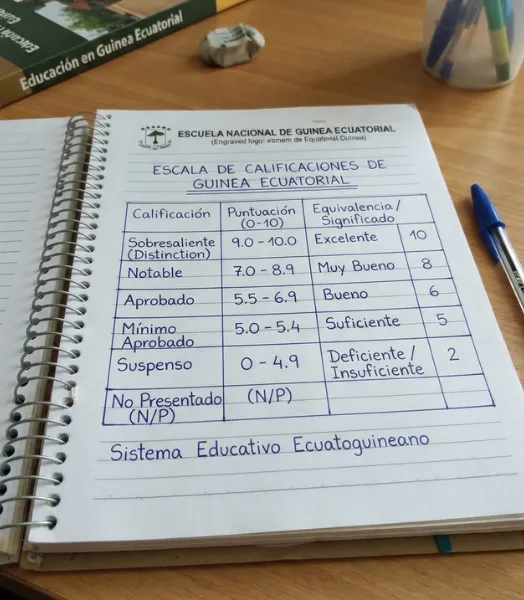 Educación en Guinea Ecuatorial
ESCUELA NACIONAL DE GUINEA ECUATORIAL
(Engraved logo: of Equatorial Guinea)
ESCALA DE CALIFICACIONES DE
GUINEA ECUATORIAL
Calificación Puntuación (0-10) Equivalencia / Significado
Sobresaliente (Distinction) 9.0 - 10.0 Excelente 10
Notable 7.0 - 8.9 Muy Bueno 8
Aprobado 5.5 - 6.9 Bueno 6
Mínimo Aprobado 5.0 - 5.4 Suficiente 5
Suspenso 0 - 4.9 Deficiente / Insuficiente 2
No Presentado (N/P) (N/P)
Sistema Educativo Ecuatoguineano